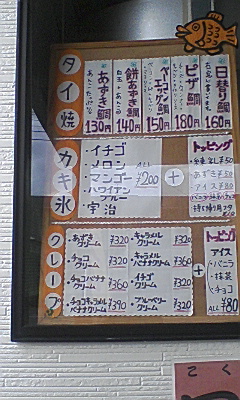 タイ焼
あずき鯛
130円
餅あずき鯛
白玉+あんこ
140円
ベーコンケン鯛
150円
ピザ鯛
180円
日替り鯛
160円
カキ氷
・イチゴ
・メロン
・マンゴー
・ハワイアンブルー
・宇治
ALL
¥200
+
トッピング
あずき¥50
アイス¥80
クレープ
・あずきクリーム ¥320
・チョコクリーム ¥320
・チョコバナナクリーム ¥360
・チョコキャラメルクリーム ¥390
・キャラメルクリーム ¥320
・キャラメルバナナクリーム ¥360
・イチゴクリーム ¥320
・ブルーベリークリーム ¥320
+
トッピング
アイス
・バニラ
・抹茶
・チョコ
ALL ¥80
こく